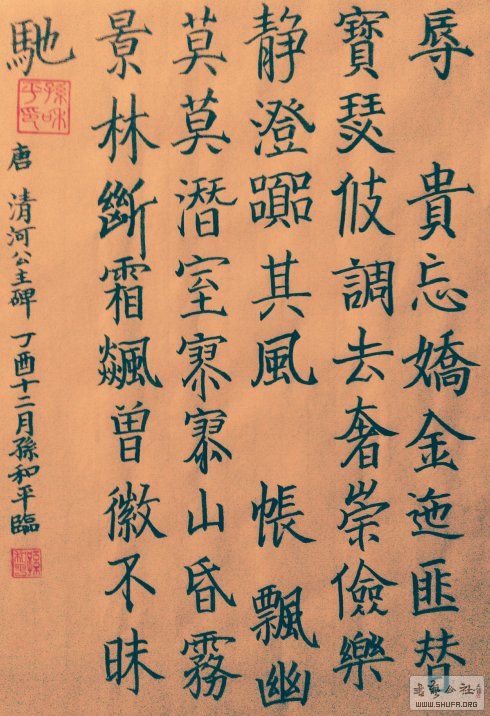 辱 貴忘嬌金迤匪替
寶瑟伎調去奢崇儉樂
静澄躁其風 帳飄幽
莫莫潛室寥寥山昏霧
景林斷霜飆曾徽不昧
馳
唐 清河公主碑 丁酉十二月孫和平臨
孫和平印
書藝公社
WWW.SHUFA.ORG